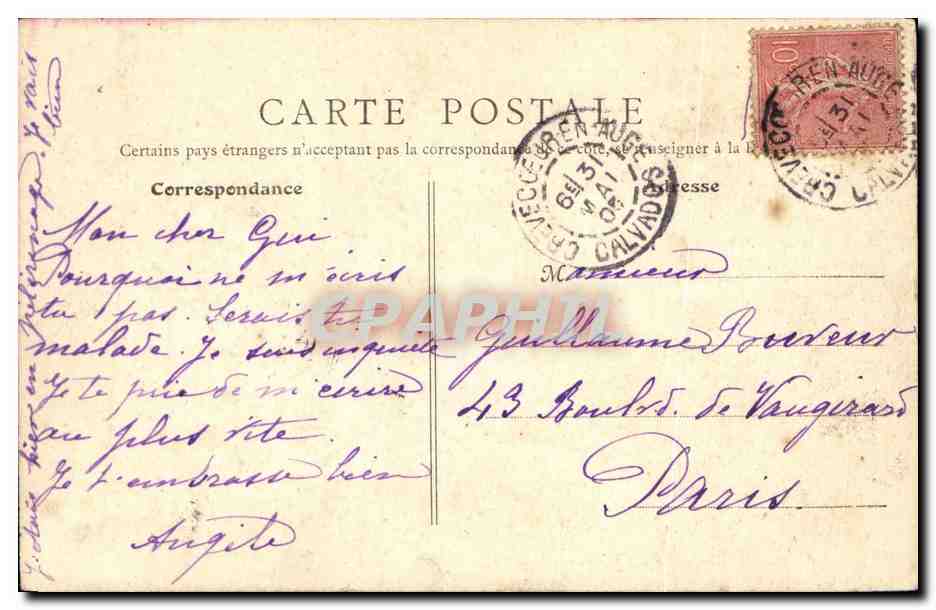 CARTE POSTALE
Certains pays étrangers n'acceptant pas la correspondance de ce côté, se renseigner à la
Correspondance
Adresse
Mon cher Gui
Pourquoi ne m'écris
tu pas. Serais tu
malade. Je suis inquiète
Je te prie de m'écrire
au plus vite.
Je t'embrasse bien
Angèle
J'étais hier en pélerinage. Je vais bien
Monsieur
Guillaume
43 Boulrd. de Vaugirard
Paris
CREVECŒUR-EN-AUGE
6E/ 31
MAI
05
CALVADOS
10
R-EN-AUGE
31
CALVA
CPAPHIL